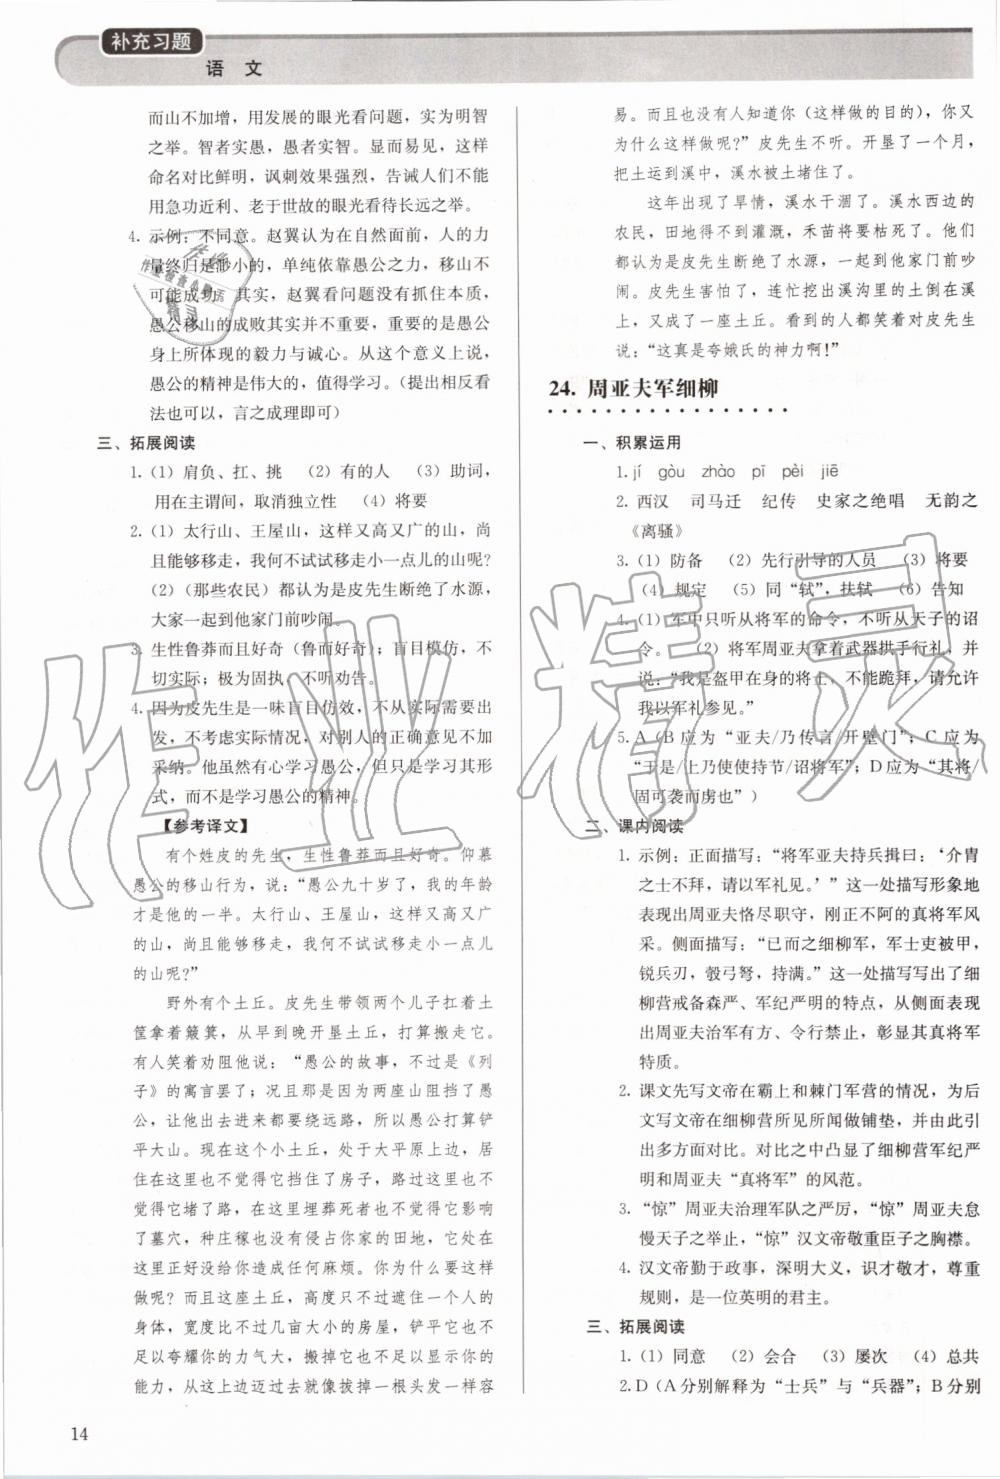 补充习题
语 文
而山不加增，用发展的眼光看问题，实为明智
之举。智者实愚，愚者实智。显而易见，这样
命名对比鲜明，讽刺效果强烈，告诫人们不能
用急功近利、老于世故的眼光看待长远之举。
4. 示例：不同意。赵翼认为在自然面前，人的力
量终归是渺小的，单纯依靠愚公之力，移山不
可能成功。其实，赵翼看问题没有抓住本质，
愚公移山的成败其实并不重要，重要的是愚公
身上所体现的毅力与诚心。从这个意义上说，
愚公的精神是伟大的，值得学习。（提出相反看
法也可以，言之成理即可）
三、拓展阅读
1.（1）肩负、扛、挑 （2）有的人 （3）助词，
用在主谓间，取消独立性 （4）将要
2.（1）太行山、王屋山，这样又高又广的山，尚
且能够移走，我何不试试移走小一点儿的山呢？
（2）（那些农民）都认为是皮先生断绝了水源，
大家一起到他家门前吵闹。
3. 生性鲁莽而且好奇（鲁而好奇）；盲目模仿，不
切实际；极为固执，不听劝告。
4. 因为皮先生是一味盲目仿效，不从实际需要出
发，不考虑实际情况，对别人的正确意见不加
采纳。他虽然有心学习愚公，但只是学习其形
式，而不是学习愚公的精神。
【参考译文】
有个姓皮的先生，生性鲁莽而且好奇。仰慕
愚公的移山行为，说：“愚公九十岁了，我的年龄
才是他的一半。太行山、王屋山，这样又高又广
的山，尚且能够移走，我何不试试移走小一点儿
的山呢？”
野外有个土丘。皮先生带领两个儿子扛着土
筐拿着簸箕，从早到晚开垦土丘，打算搬走它。
有人笑着劝阻他说：“愚公的故事，不过是《列
子》的寓言罢了；况且那是因为两座山阻挡了愚
公，让他出出进进都要绕远路，所以愚公打算铲
平大山。现在这个小土丘，处于大平原上边，居
住在这里不觉得它挡住了房子，路过这里也不
觉得它堵了路，在这里埋葬死者也不觉得它影响
了墓穴，种庄稼也没有侵占你家的田地，它处在
这里正好没给你造成任何麻烦。你为什么要这样
做呢？而且这座土丘，高度只不过遮住一个人的
身体，宽度比不过几亩大小的房屋，铲平它也不
足以夸耀你的力气大，搬掉它也不足以显示你的
能力，从这上边迈过去就像拔掉一根头发一样容
易。而且也没有人知道你（这样做的目的），你又
为什么这样做呢？”皮先生不听。开垦了一个月，
把土运到溪中，溪水被土堵住了。
这年出现了旱情，溪水干涸了。溪水西边的
农民，田地得不到灌溉，禾苗将要枯死了。他们
都认为是皮先生断绝了水源，一起到他家门前吵
闹。皮先生害怕了，连忙挖出溪沟里的土倒在溪
上，又成了一座土丘。看到的人都笑着对皮先生
说：“这真是夸娥氏的神力啊！”
24. 周亚夫军细柳
一、积累运用
1. jí gòu zhào pī pèi jiē
2. 西汉 司马迁 纪传 史家之绝唱 无韵之
《离骚》
3.（1）防备 （2）先行引导的人员 （3）将要
（4）规定 （5）同“轼”，扶轼 （6）告知
4.（1）军中只听从将军的命令，不听从天子的诏
令。 （2）将军周亚夫拿着武器拱手行礼，并
说：“我是盔甲在身的将士，不能跪拜，请允许
我以军礼参见。”
5. A（B应为“亚夫/乃传言/开壁门”；C应为
“于是/上乃使使持节/诏将军”；D应为“其将/
固可袭而虏也”）
二、课内阅读
1. 示例：正面描写：“将军亚夫持兵揖曰：‘介胄
之士不拜，请以军礼见。’”这一处描写形象地
表现出周亚夫恪尽职守，刚正不阿的真将军风
采。侧面描写：“已而之细柳军，军士吏被甲，
锐兵刃，彀弓弩，持满。”这一处描写写出了细
柳营戒备森严、军纪严明的特点，从侧面表现
出周亚夫治军有方、令行禁止，彰显其真将军
特质。
2. 课文先写文帝在霸上和棘门军营的情况，为后
文写文帝在细柳营所见所闻做铺垫，并由此引
出多方面对比。对比之中凸显了细柳营军纪严
明和周亚夫“真将军”的风范。
3. “惊”周亚夫治理军队之严厉，“惊”周亚夫怠
慢天子之举止，“惊”汉文帝敬重臣子之胸襟。
4. 汉文帝勤于政事，深明大义，识才敬才，尊重
规则，是一位英明的君主。
三、拓展阅读
1.（1）同意 （2）会合 （3）屡次 （4）总共
2. D（A分别解释为“士兵”与“兵器”；B分别
14
作业精灵